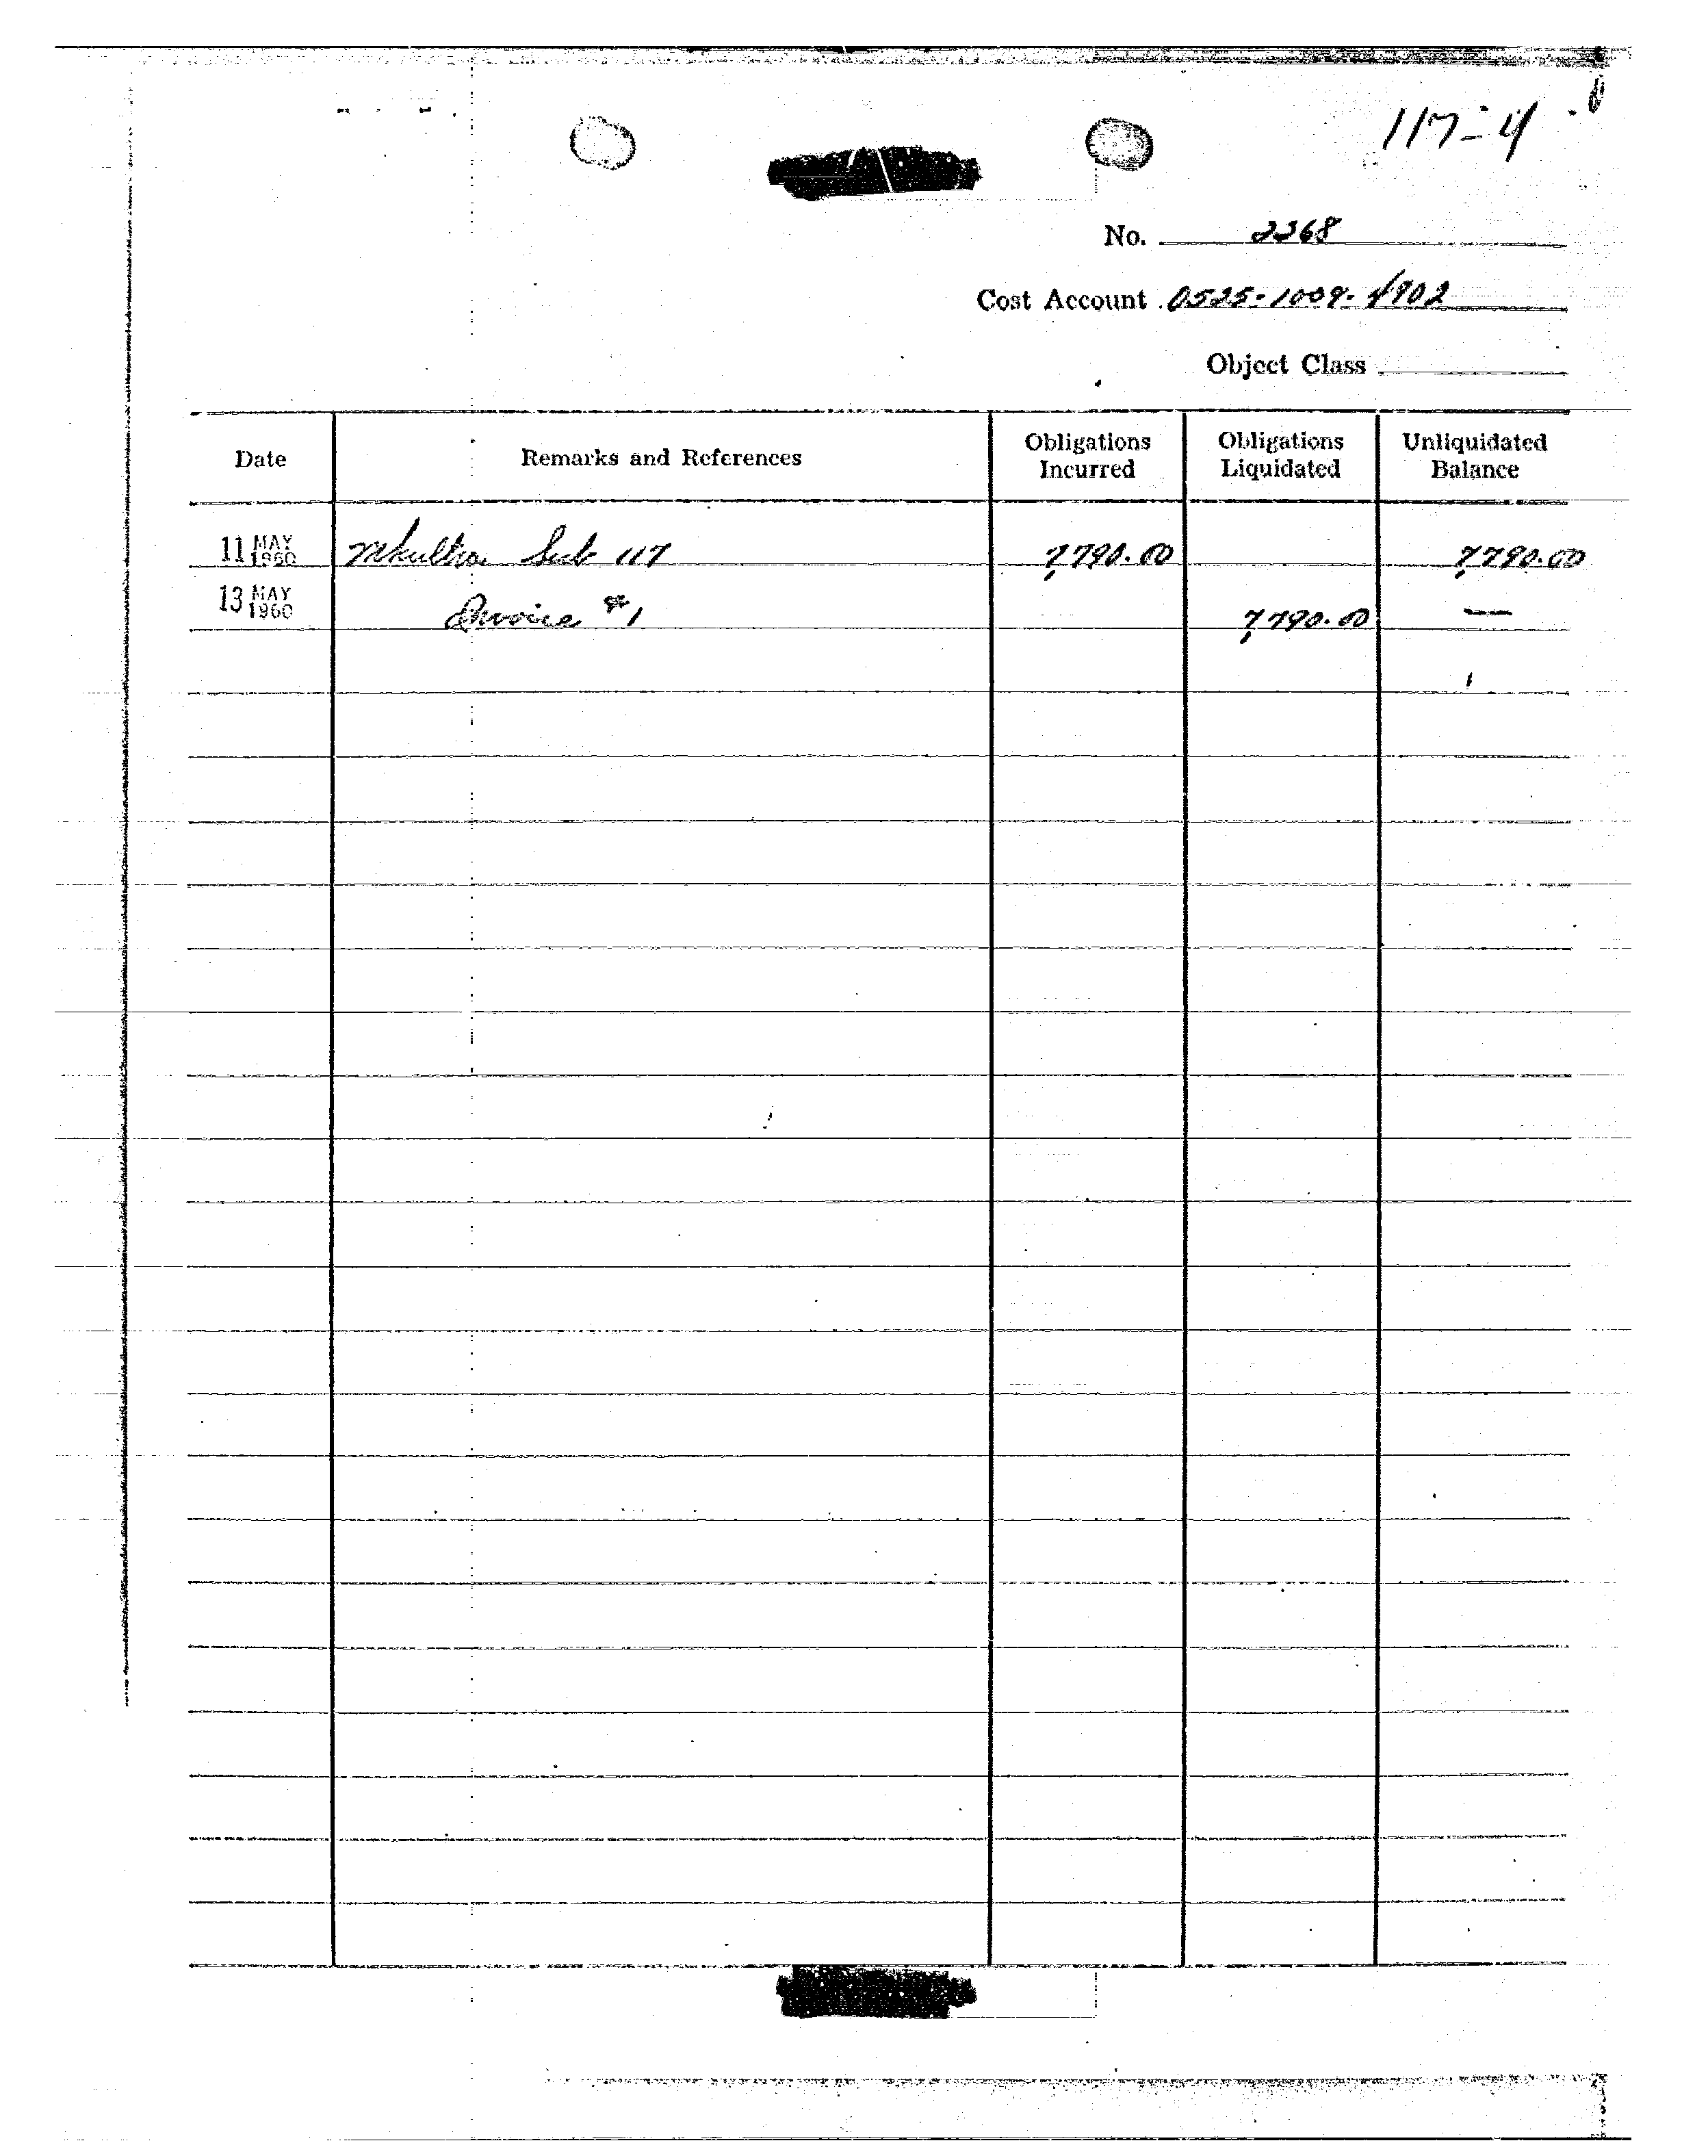 117-4
No. 2268
Cost Account 0525-1009-4902
Object Class
Date Remarks and References Obligations Incurred Obligations Liquidated Unliquidated Balance
11 MAY 1960 Mkultra Sub 117 7,790.00 7,790.00
13 MAY 1960 Invoice #1 7,790.00 —